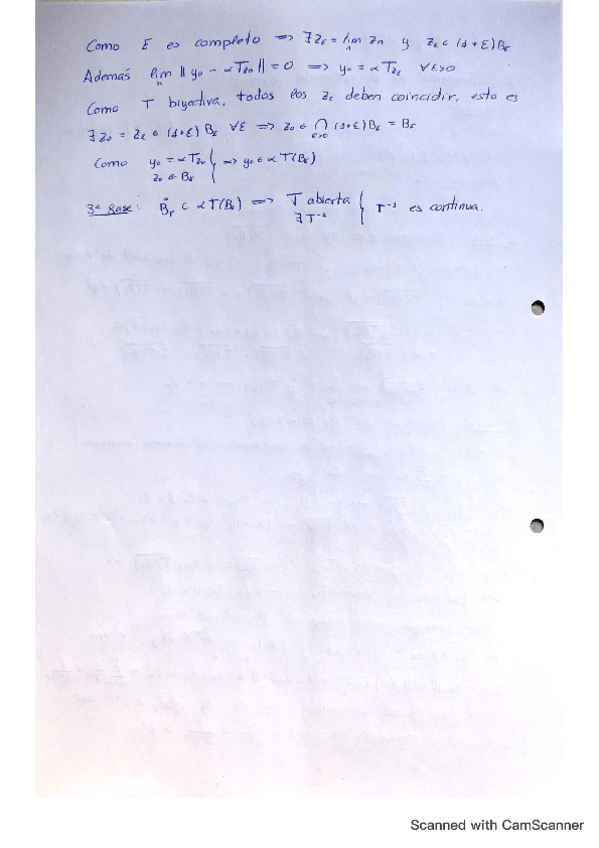 Como E es completo => ∃ z_ε = lim_n z_n y z_ε ∈ (1+ε)B_E
Además lim_n || y_0 - αTz_n || = 0 => y_0 = αTz_ε ∀ε>0
Como T biyectiva, todos los z_ε deben coincidir, esto es
∃ z_0 = z_ε ∈ (1+ε)B_E ∀ε => z_0 ∈ ⋂_{ε>0} (1+ε)B_E = B_E
Como y_0 = αTz_0
z_0 ∈ B_E } => y_0 ∈ αT(B_E)
3ª Base: B̊_F ⊂ αT(B_E) => T abierta
∃ T^-1 } T^-1 es continua.
Scanned with CamScanner